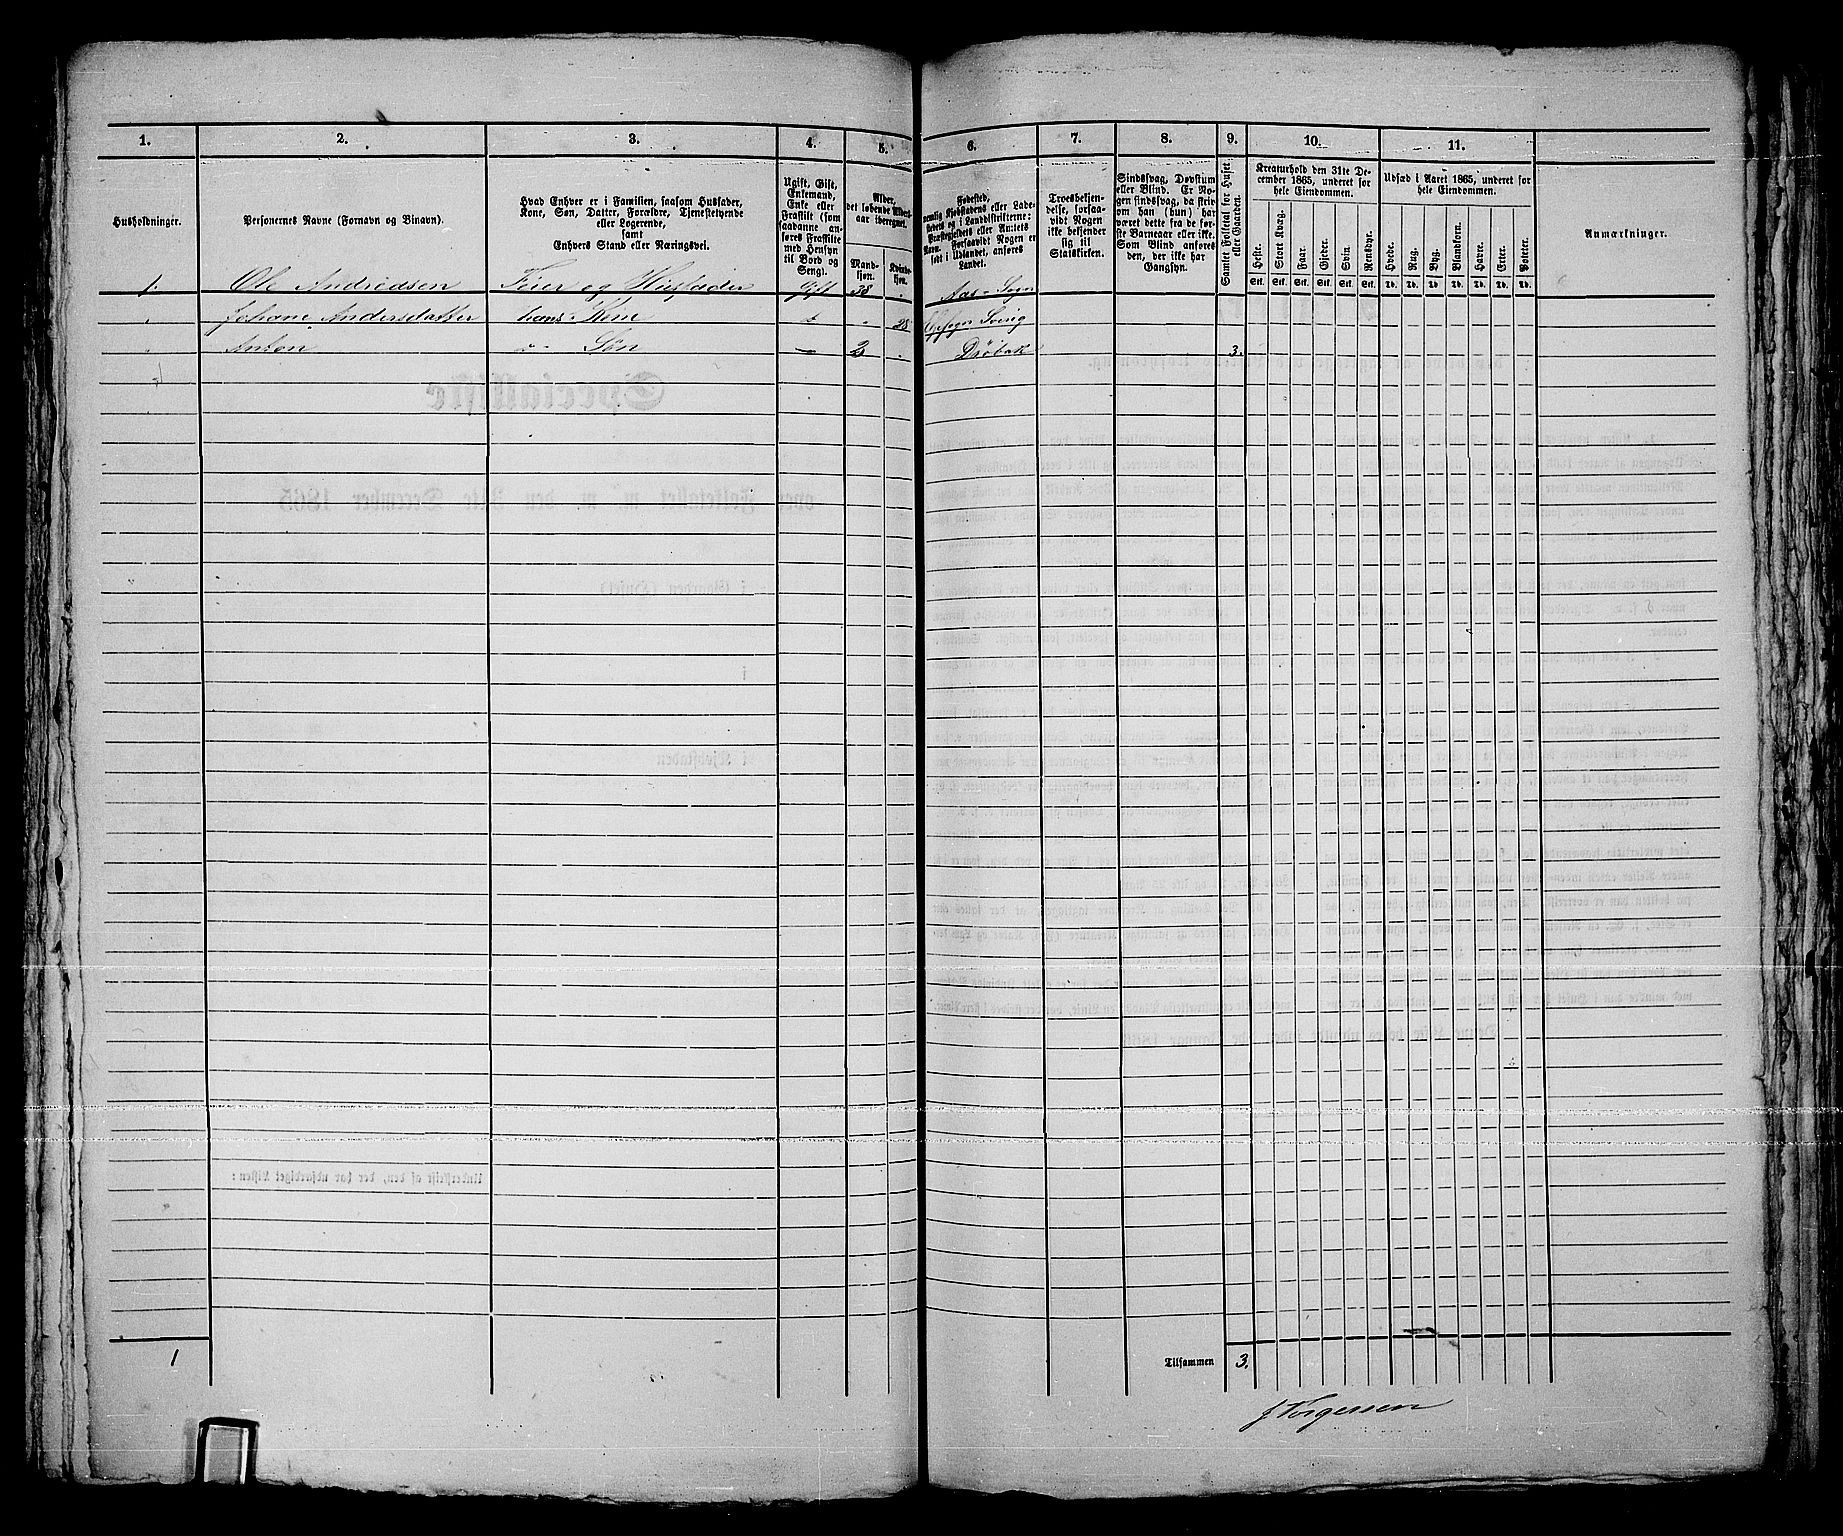 1. 2. 3. 4. 5. 6. 7. 8. 9. 10. 11.
Husholdninger.
Personernes Navne (Fornavn og Binavn).
Hvad Enhver er i Familien, saasom Husfader,
Kone, Søn, Datter, Forældre, Tjenestetyende
eller Logerende,
samt
Enhvers Stand eller Næringsvei.
Ugift, Gift,
Enkemand,
Enke eller
Fraskilt (som
saadanne an-
føres Fraskilte
med Hensyn
til Bord og
Seng).
Alder,
det løbende Alders-
aar iberegnet.
Mand-
kjøn.
Kvinde-
kjøn.
Fødested,
nemlig Kjøbstadens eller Lade-
stedets og i Landdistrikterne:
Præstegjeldets eller Amtets
Navn. Forsaavidt Nogen er
født i Udlandet, anføres
Landet.
Troesbekjen-
delse, forsaa-
vidt Nogen
ikke bekjender
sig til
Statskirken.
Sindssvag, Døvstum
eller Blind. Er No-
gen sindssvag, da skriv
om han (hun) har
været dette fra de før-
ste Barneaar eller ikke.
Som Blind anføres
den, der ikke har
Gangsyn.
Samlet Folketal for Huset
eller Gaarden.
Kreaturhold den 31te De-
cember 1865, underet for
hele Eiendommen.
Heste. Stort Kvæg. Faar. Gjeder. Svin. Rensdyr.
Stk. Stk. Stk. Stk. Stk. Stk.
Udsæd i Aaret 1865, underet for
hele Eiendommen.
Hvede. Rug. Byg. Blandkorn. Havre. Erter. Poteter.
Td. Td. Td. Td. Td. Td. Td.
Anmærkninger.
1. Ole Andreasen Feier og Husfader Gift 38 " Aas Sogn
" Johane Andersdatter hans Kone " 28 Sverig
" Anton " Søn — 2 " Drøbak 3.
1 Tilsammen 3.
J Torgersen